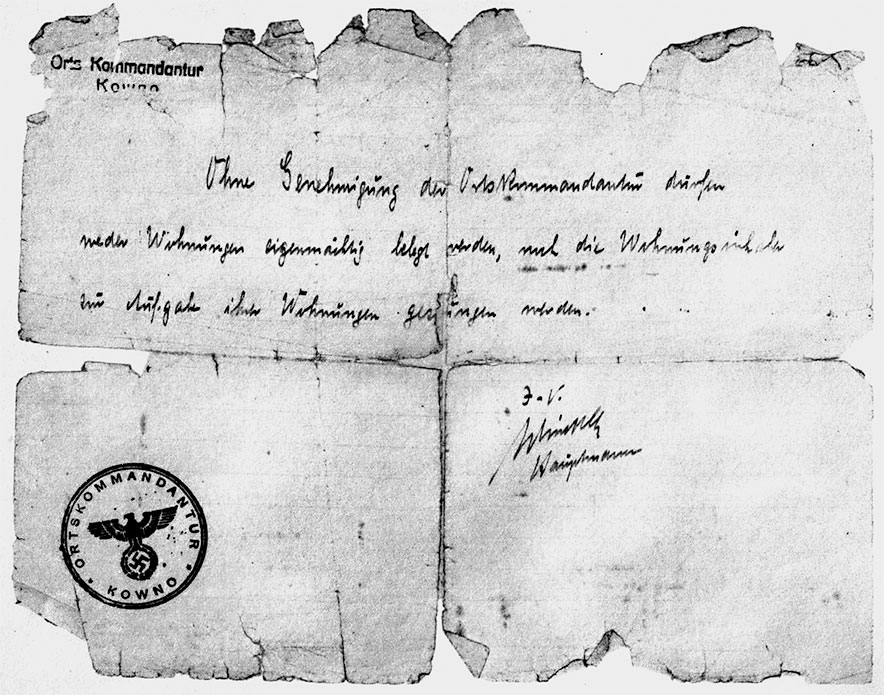 Orts Kommandantur
Kowno
Ohne Genehmigung der Ortskommandantur dürfen
weder Wohnungen eigenmächtig belegt werden, noch die Wohnungsinhaber
zur Aufgabe ihrer Wohnungen gezwungen werden.
J.V.
Hauptmann
ORTSKOMMANDANTUR
KOWNO